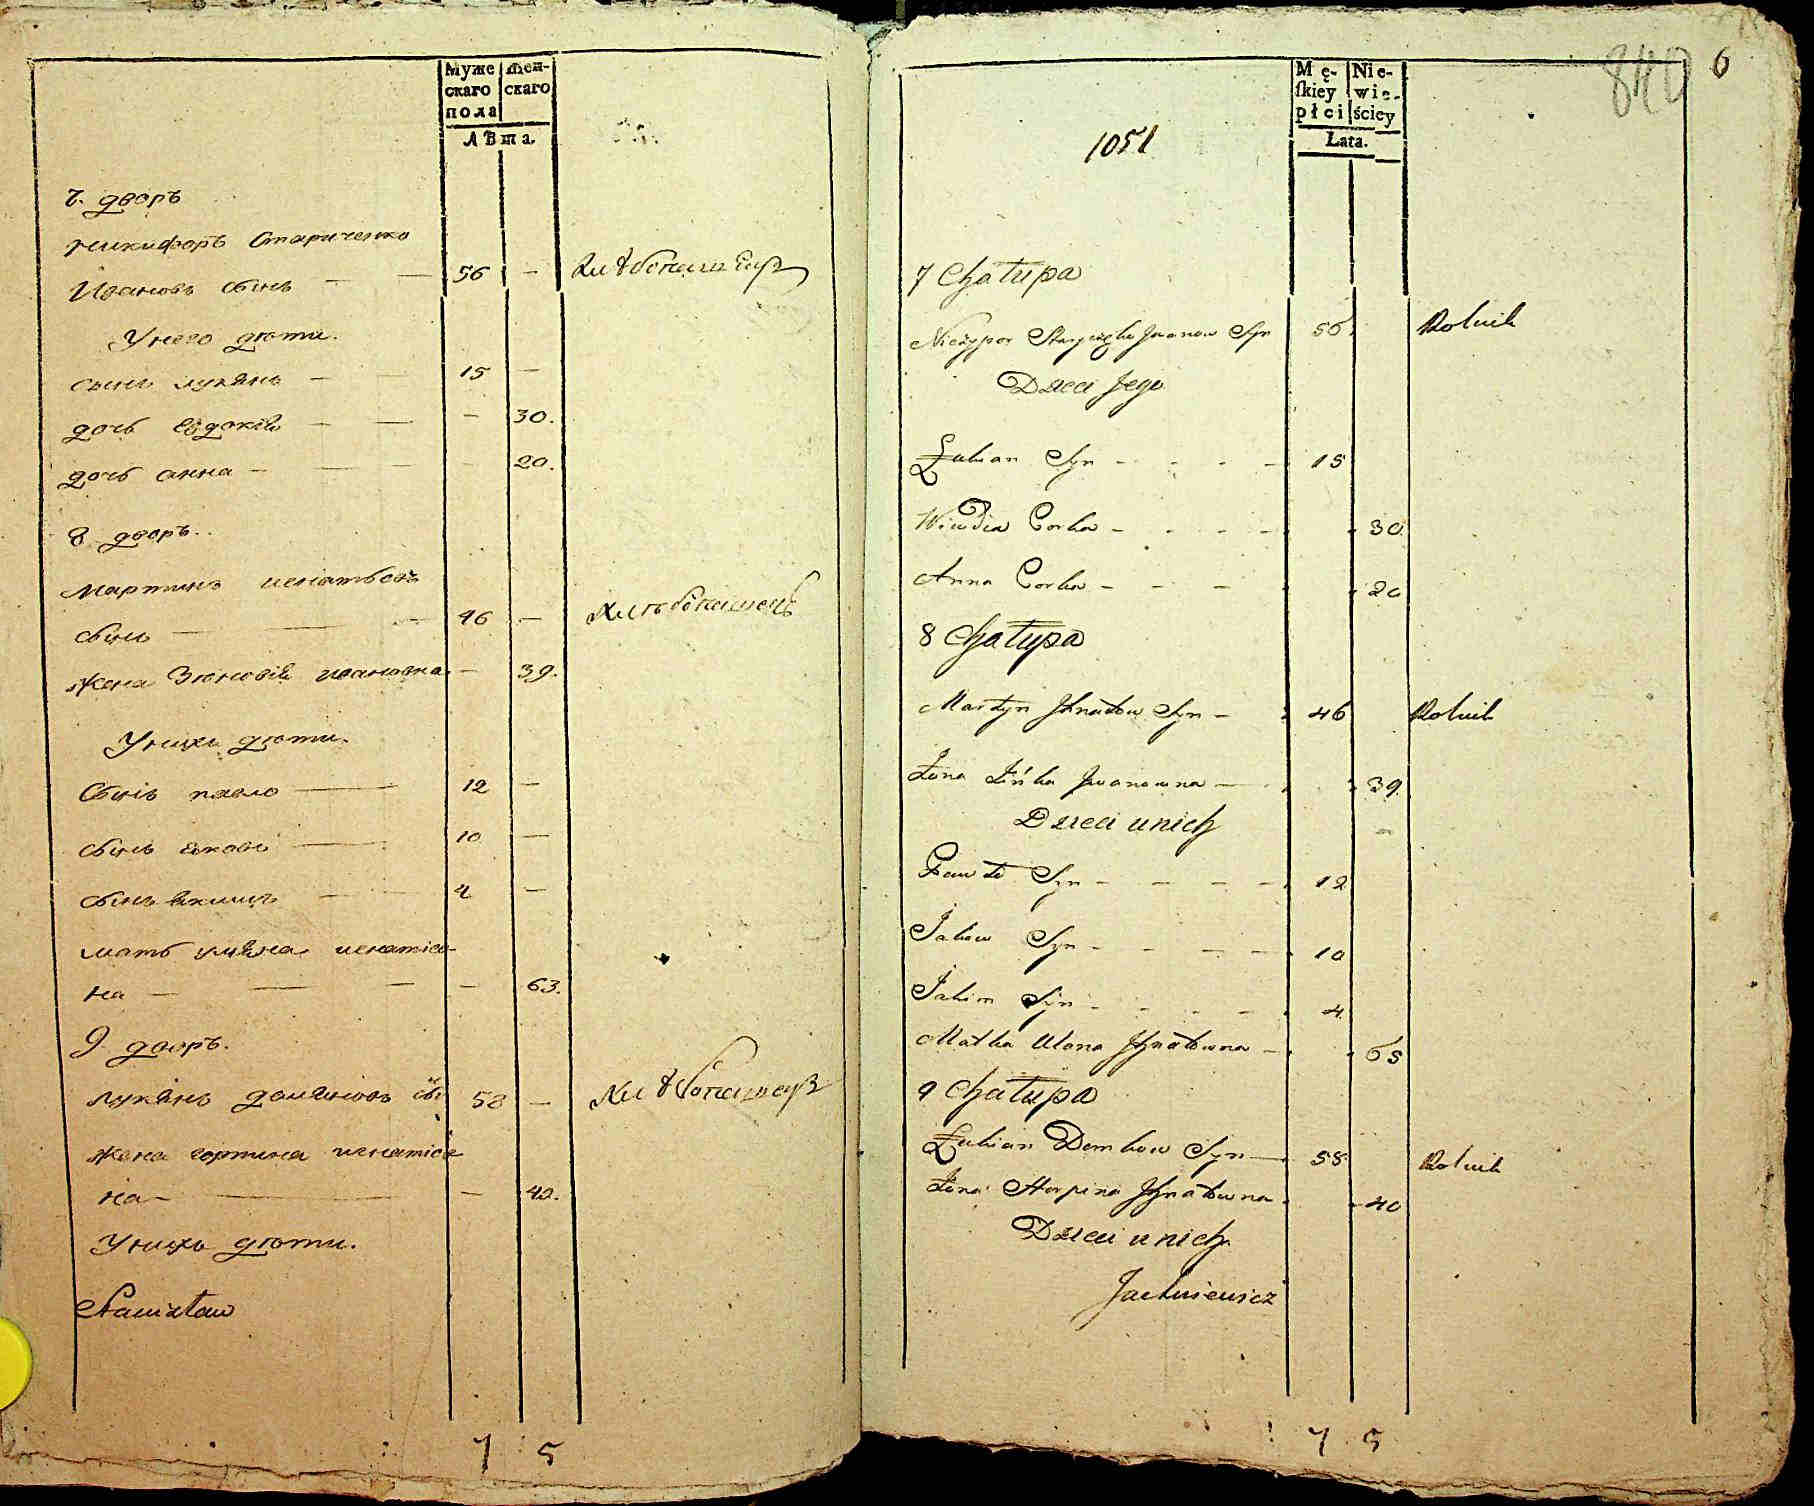 Муже Жен-
скаго скаго
пола
Лѣта.
7. дворъ
Никифоръ Стариченко
Ивановъ сынъ — — 56 —
У него дѣти.
сынъ лукянъ — — 15 —
дочь Евдокія — — — 30.
дочь анна — — — — 20.
8 дворъ.
мартинъ игнатьевъ
сынъ — — — 46 — хлѣбопашецъ
жена Зѣновія ивановна — 39.
У нихъ дѣти.
Сынъ павло — 12 —
сынъ яковъ — 10 —
сынъ якимъ — — 4 —
мать уляна игнатiев-
на — — — — 63.
9 дворъ.
лукянъ демяновъ сы 58 — хлѣбопашецъ
жена горпина игнатіев
на — — — 40.
У нихъ дѣти.
Stanisław
7 5
840 6
Mę- Nie-
ſkiey wie-
płci ściey
Lata.
1051
7 Chałupa
Nicźypor Jwanow Syn 56. Rolnik
Dzieci Jego
Łukian Syn - - - - 15
Córka - - - - - 30.
Anna Córka - - - - - 20
8 Chałupa
Martyn Jhnatow Syn - 46 Rolnik
Żona Zińka Jwanowna - 39.
Dzieci u nich
Pawło Syn - - - - 12
Jakow Syn - - - - 10
Jakim Syn - - - - 4.
Matka Ulana Jhnatowna - 63
9 Chałupa
Łukian Demkow Syn - 58. Rolnik
Żona Horpina Jhnatowna - 40
Dzieci u nich
Jackiewicz
7 5